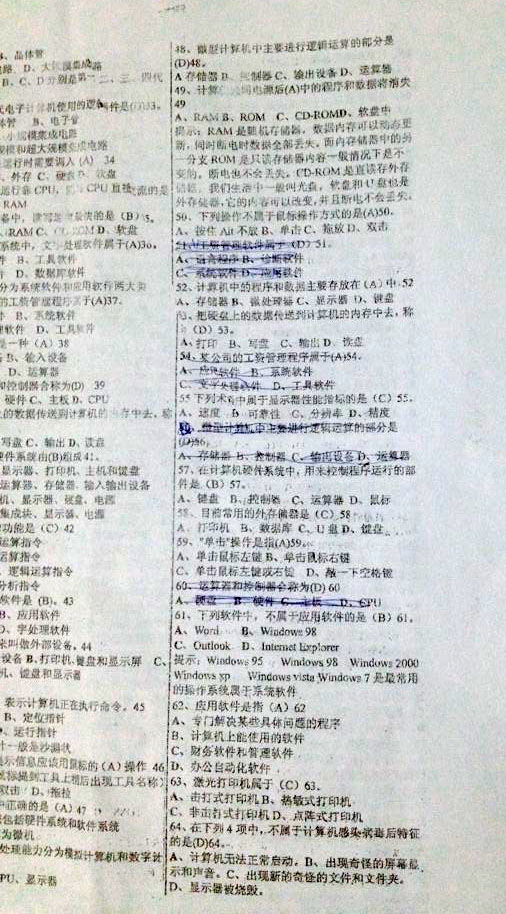 、晶体管
路、D、大规模集成电路
B、C、D分别是第一、二、三、四代
件是(D)33。
体管 B、电子管
小规模集成电路
规模和超大规模集成电路
运行时需要调入(A) 34
、外存 C、硬盘 D、软盘
RAM
D、软盘
系统中,文字处理软件属于(A)36。
件 B、工具软件
件 D、数据库软件
分为系统软件和应用软件两大类
的工资管理程序属于(A)37。
件 B、系统软件
理软件 D、工具软件
是一种(A)38
B、输入设备
和控制器合称为(D) 39
硬件 C、主板 D、CPU
的数据传送到计算机的内存中去,称
写盘 C、输出 D、读盘
硬件系统由(B)组成41。
显示器、打印机、主机和键盘
运算器、存储器、输入输出设备
机、显示器、硬盘、电源
集成块、显示器、电源
功能是(C)42
运算指令
运算指令
、逻辑运算指令
分析指令
软件是(B)。43
B、应用软件
D、字处理软件
来叫做外部设备。44
设备 B、打印机、键盘和显示屏 C、
机、键盘和显示器
表示计算机正在执行命令。45
B、定位指针
、运行指针
针一般是沙漏状
示信息应该用鼠标的(A)操作 46
鼠标提到工具上稍后出现工具名称)
双击 D、拖拉
中正确的是(A)47
包括硬件系统和软件系统
为微机
处理能力分为模拟计算机和数字计
PU、显示器
48、微型计算机中主要进行逻辑运算的部分是
(D)48。
A 存储器 B、控制器 C、输出设备 D、运算器
49、计算机关闭电源后(A)中的程序和数据将消失
49
A、RAM B、ROM C、CD-ROM D、软盘中
提示:RAM 是随机存储器,数据内存可以动态更
新,同时断电时数据全部丢失。而内存储器中的另
一分支 ROM 是只读存储器内容一般情况下是不
变的。断电也不会丢失。CD-ROM 是直读存外存
储器,我们生活中一般叫光盘,软盘和 U 盘也是
外存储器,它的内容可以改变,并且断电不会丢失。
50、下列操作不属于鼠标操作方式的是(A)50。
A、按住 Alt 不放 B、单击 C、拖放 D、双击
51、人工资管理软件属于(D)51。
A、语言程序 B、诊断软件
C、系统软件 D、应用软件
52、计算机中的程序和数据主要存放在(A)中 52
A、存储器 B、微处理器 C、显示器 D、键盘
53、把硬盘上的数据传送到计算机的内存中去,称
为(D)53。
A、打印 B、写盘 C、输出 D、读盘
54、某公司的工资管理程序属于(A)54。
A、应用软件 B、系统软件
C、文字处理软件 D、工具软件
55 下列术语中属于显示器性能指标的是(C)55.
A、速度 B 可靠性 C、分辨率 D、精度
56、微型计算机中主要进行逻辑运算的部分是
(D)56。
A、存储器 B、控制器 C、输出设备 D、运算器
57、在计算机硬件系统中,用来控制程序运行的部
件是(B)57。
A、键盘 B、控制器 C、运算器 D、鼠标
58、目前常用的外存储器是(C)58
A、打印机 B、数据库 C、U 盘 D、键盘
59、"单击"操作是指(A)59。
A、单击鼠标左键 B、单击鼠标右键
C、单击鼠标左键或右键 D、敲一下空格键
60、运算器和控制器合称为(D) 60
A、硬盘 B、硬件 C、主板 D、CPU
61、下列软件中,不属于应用软件的是(B)61。
A、Word B、Windows 98
C、Outlook D、Internet Explorer
提示:Windows 95 Windows 98 Windows 2000
Windows xp Windows vista Windows 7 是最常用
的操作系统属于系统软件
62、应用软件是指(A)62
A、专门解决某些具体问题的程序
B、计算机上能使用的软件
C、财务软件和管理软件
D、办公自动化软件
63、激光打印机属于(C)63。
A、击打式打印机 B、热敏式打印机
C、非击打式打印机 D、点阵式打印机
64、在下列 4 项中,不属于计算机感染病毒后特征
的是(D)64。
A、计算机无法正常启动。B、出现奇怪的屏幕显
示和声音。C、出现新的奇怪的文件和文件夹。
D、显示器被烧毁。